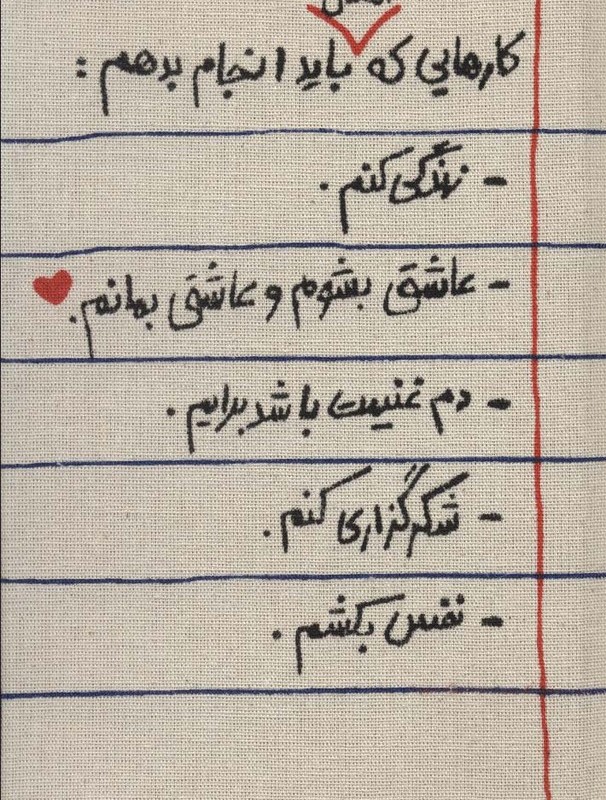 کارهایی که باید انجام بدهم :
- زندگی کنم .
- عاشق بشوم و عاشق بمانم .
- دم غنیمت باشد برایم .
- شکرگزاری کنم .
- نفس بکشم .